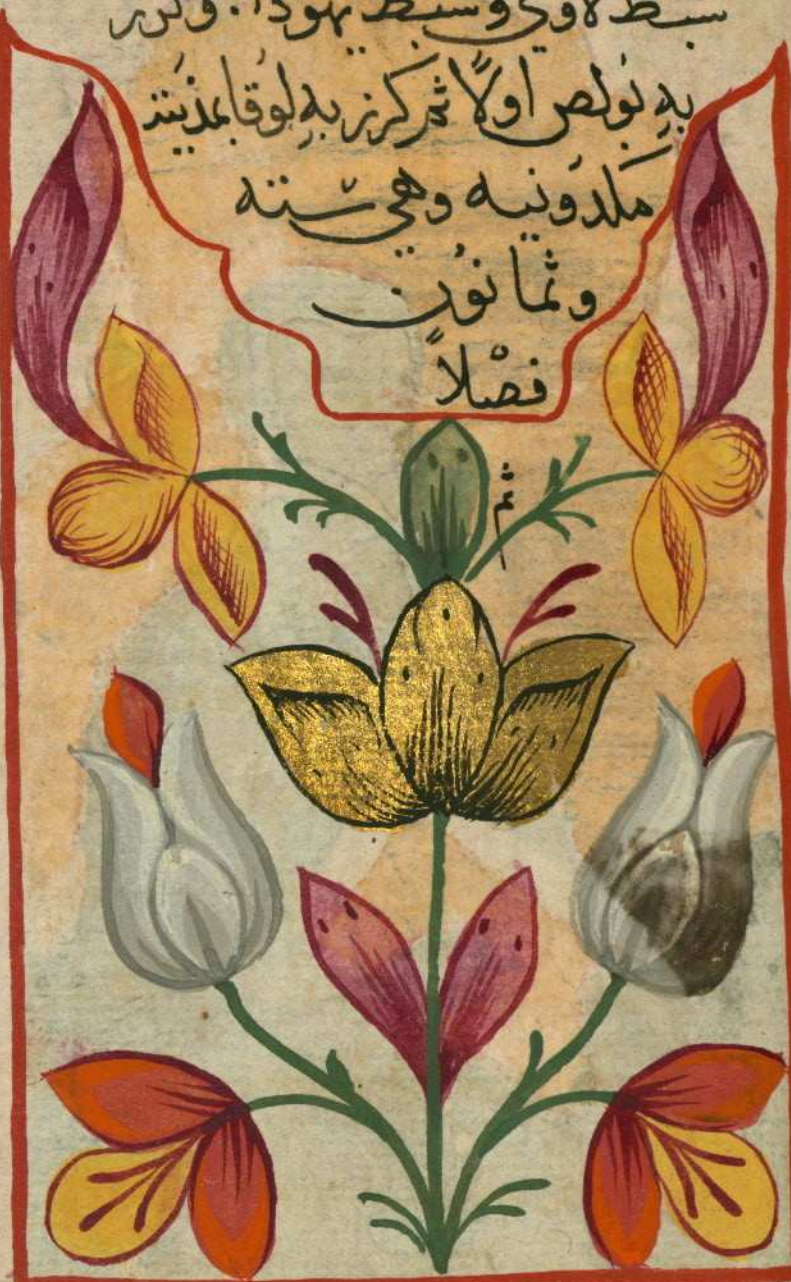 سبط لاوي وسبط يهودا. وكرز
بهِ بُولص اولاً ثم كرز بهِ لوقا بمذينة
ملدونيه وهي ستة
وثمانون
فصْلاً
ثم